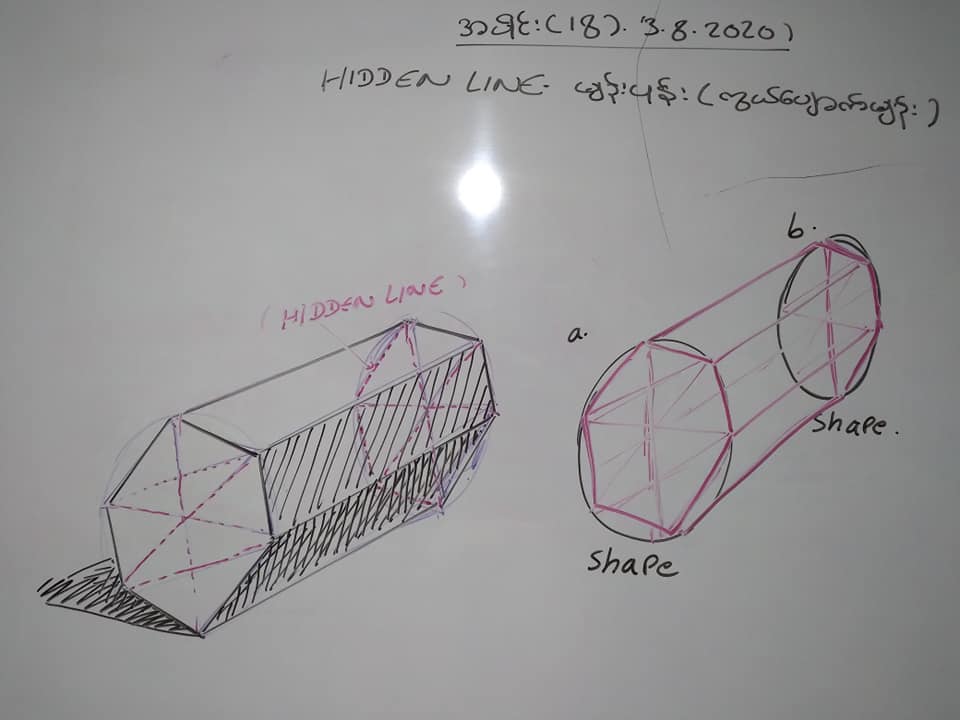 အပိုင်း (18). 3.8.2020)
HIDDEN LINE မျဉ်းပုန်း (ကွယ်ပျောက်မျဉ်း)
(HIDDEN LINE)
b.
a.
shape.
shape